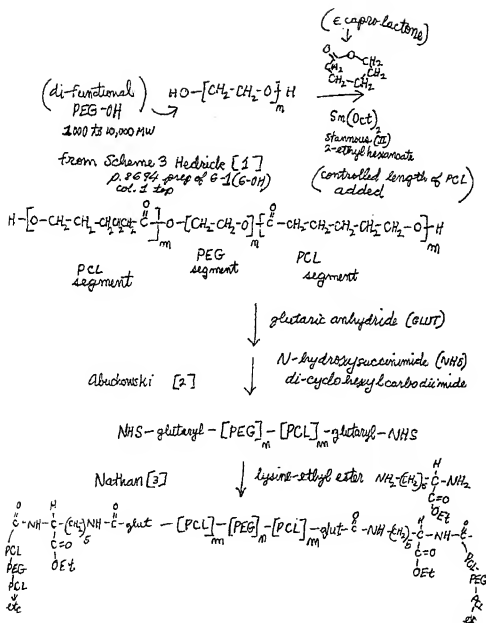 (ε caprolactone)
(di-functional PEG-OH) HO-[CH₂-CH₂-O]-H
m
1000 to 10,000 MW
O O-CH₂
CH₂ CH₂
CH₂-CH₂
Sn(Oct)₂
stannous (II)
2-ethyl hexanoate
from Scheme 3 Hedrick [1]
p. 8674 prep of G-1(G-OH)
col. 1 top
(controlled length of PCL)
added
H-[O-CH₂-CH₂-CH₂CH₂CH₂-C(=O)]m-O-[CH₂-CH₂-O]n-[C(=O)-CH₂-CH₂-CH₂-CH₂-CH₂-O]m-H
PCL segment
PEG segment
PCL segment
glutaric anhydride (GLUT)
Abuckowski [2]
N-hydroxysuccinimide (NHS)
di-cyclohexylcarbodiimide
NHS-glutaryl-[PEG]n-[PCL]m-glutaryl-NHS
Nathan [3]
lysine-ethyl ester
NH₂-(CH₂)5-C-NH₂
H
C=O
OEt
C-NH-C-(CH₂)5NH-C-glut-[PCL]m-[PEG]n-[PCL]m-glut-C-NH-(CH₂)5-C-NH-C
O H O O H O
PCL C=O C=O PCL-
PEG OEt OEt PEG
PCL
etc etc